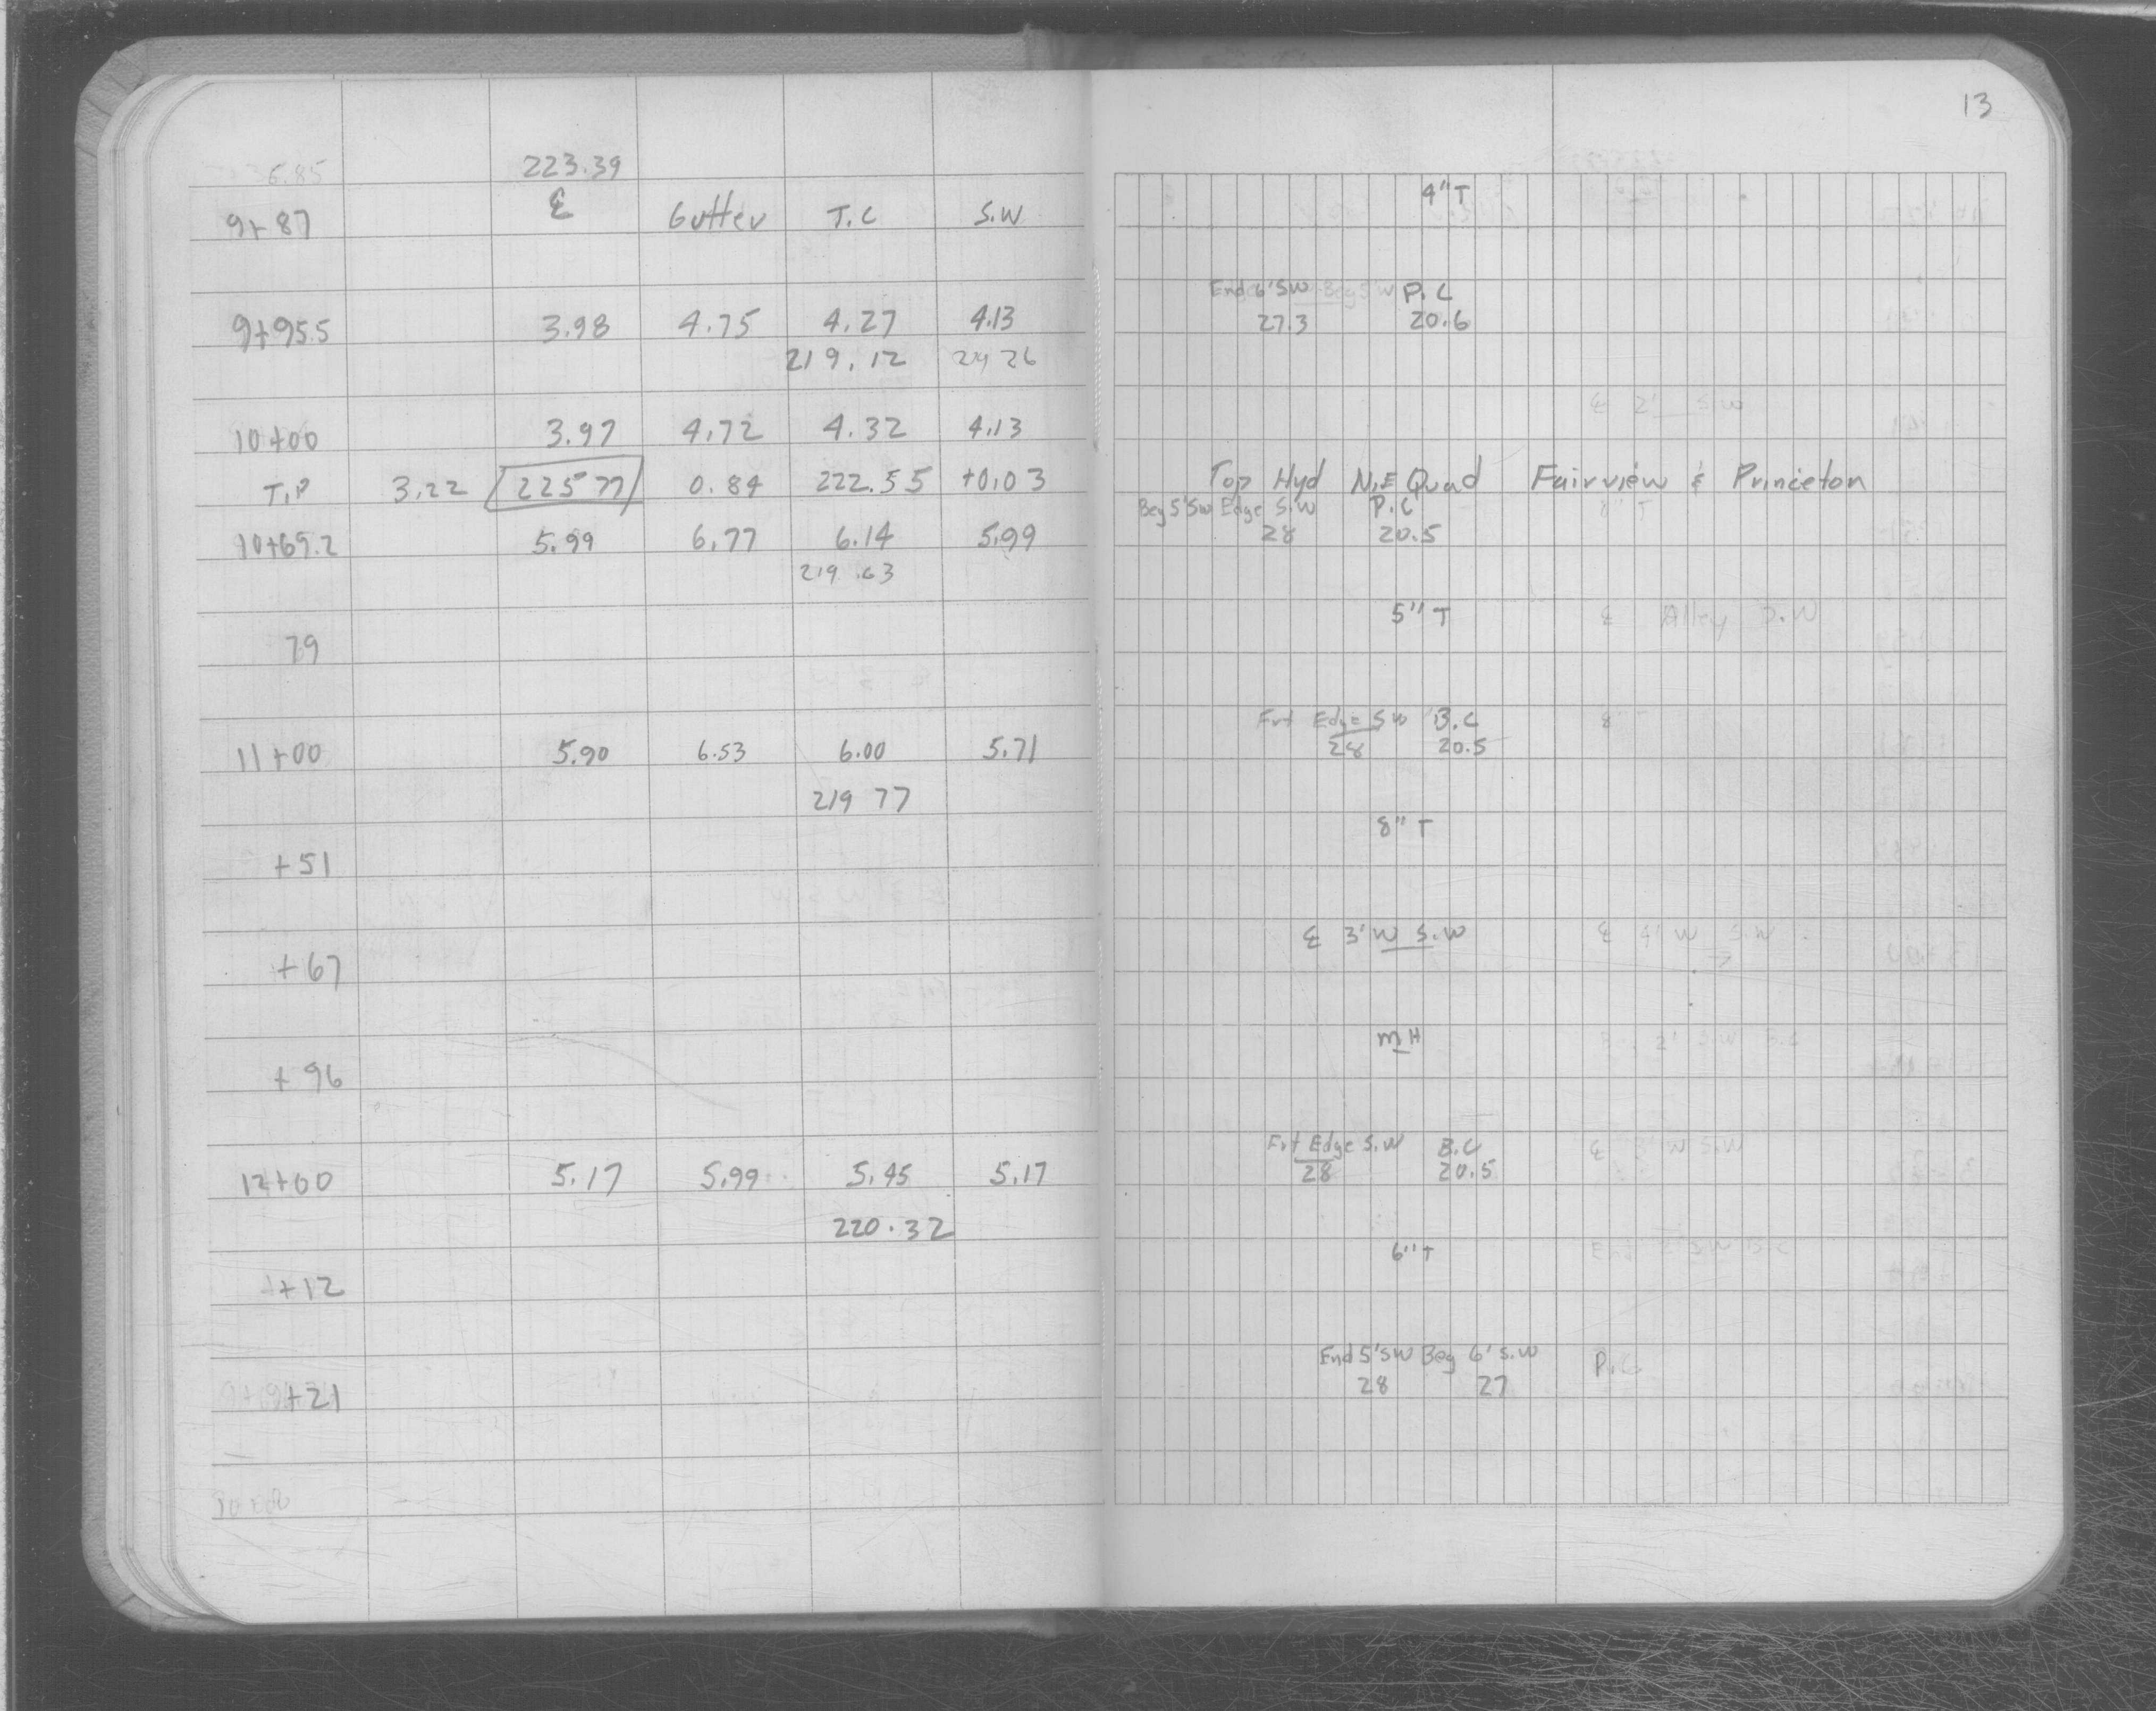 13
6.85 223.39
9+87 ℄ Gutter T.C S.W 4"T
End 6'SW Beg S W P.C
9+95.5 3.98 4.75 4.27 4.13 27.3 20.6
219.12 219 26
℄ 2' S.W
10+00 3.97 4.72 4.32 4.13
T.P 3.22 225 77 0.84 222.55 +0.03 Top Hyd N.E Quad Fairview & Princeton
Beg 5'SW Edge S.W P.C
10+69.2 5.99 6.77 6.14 5.99 28 20.5
219.63
5"T ℄ Alley S.W
79
Frt Edge SW B.C
11+00 5.90 6.53 6.00 5.71 28 20.5
219 77
8"T
+51
℄ 3'W S.W ℄ 4'W S.W
+67
MH
+96
Frt Edge S.W B.C ℄ 3'W S.W
12+00 5.17 5.99 5.45 5.17 28 20.5
220.32
6"T
+12
End 5'SW Beg 6' S.W P.C
+21 28 27